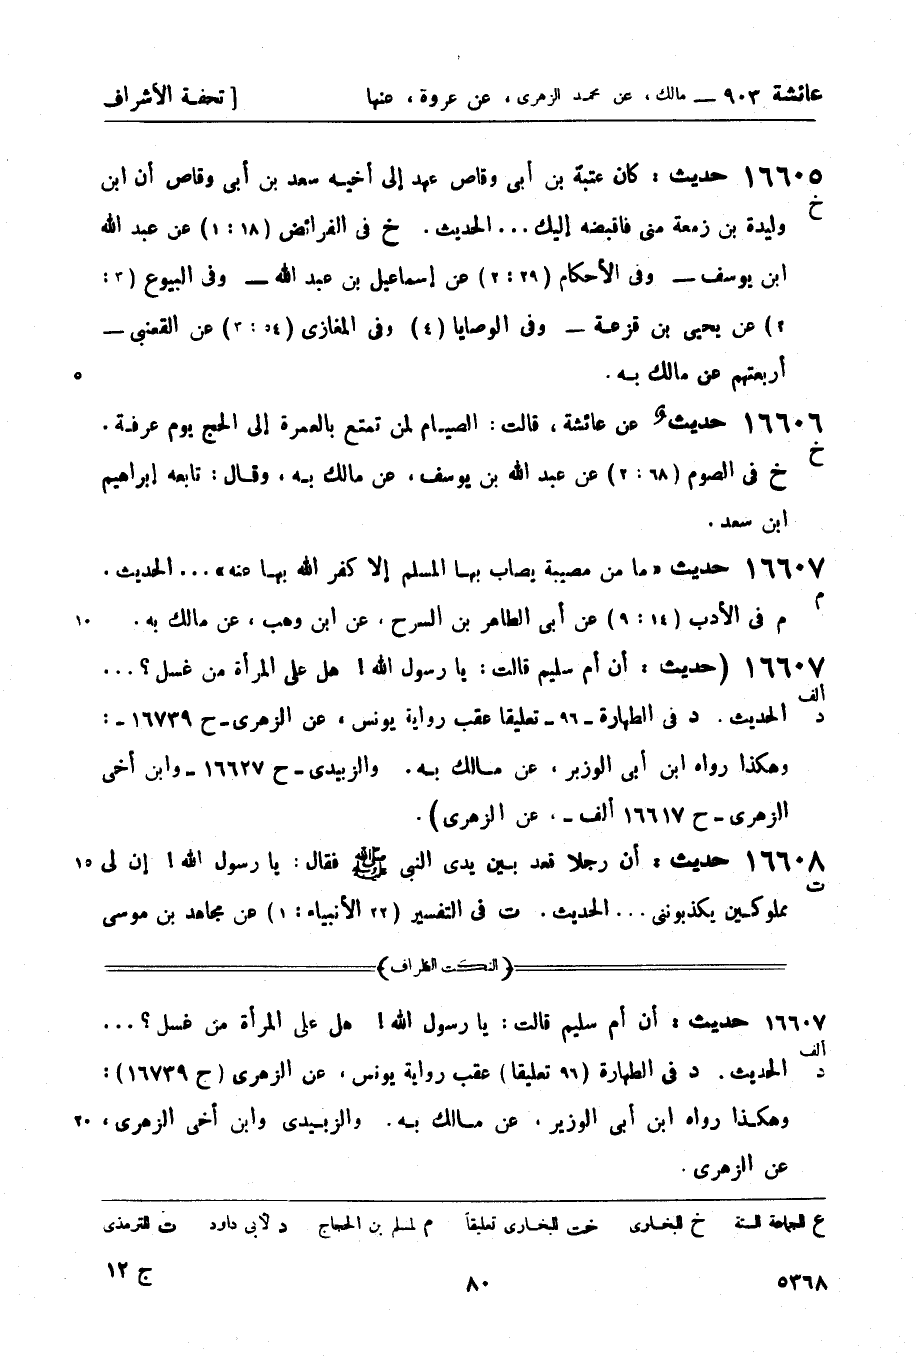 عائشة ٩٠٣ — مالك، عن محمد الزهرى، عن عروة، عنها [ تحفة الأشراف
١٦٦٠٥ حديث : كان عتبة بن أبى وقاص عهد إلى أخيه سعد بن أبى وقاص أن ابن
خ
وليدة بن زمعة منى فاقبضه إليك... الحديث. خ فى الفرائض (١٨ : ١) عن عبد الله
ابن يوسف — وفى الأحكام (٢٩ : ٢) عن إسماعيل بن عبد الله — وفى البيوع (٣ :
٢) عن يحيى بن قزعة — وفى الوصايا (٤) وفى المغازى (٥٤ : ٣) عن القعنبى —
أربعتهم عن مالك به. ٥
١٦٦٠٦ حديث عن عائشة، قالت: الصيام لمن تمتع بالعمرة إلى الحج يوم عرفة.
خ
خ فى الصوم (٦٨ : ٢) عن عبد الله بن يوسف، عن مالك به، وقال: تابعه إبراهيم
ابن سعد.
١٦٦٠٧ حديث «ما من مصيبة يصاب بها المسلم إلا كفر الله بها عنه»... الحديث.
م
م فى الأدب (١٤ : ٩) عن أبى الطاهر بن السرح، عن ابن وهب، عن مالك به. ١٠
١٦٦٠٧ (حديث : أن أم سليم قالت: يا رسول الله! هل على المرأة من غسل؟...
ألف
د الحديث. د فى الطهارة ـ ٩٦ ـ تعليقا عقب رواية يونس، عن الزهرى ـ ح ١٦٧٣٩ ـ:
وهكذا رواه ابن أبى الوزير، عن مالك به. والزبيدى ـ ح ١٦٦٢٧ ـ وابن أخى
الزهرى ـ ح ١٦٦١٧ ألف ـ، عن الزهرى).
١٦٦٠٨ حديث : أن رجلا قعد بين يدى النبى ﷺ فقال: يا رسول الله! إن لى ١٥
ت
مملوكين يكذبوننى... الحديث. ت فى التفسير (٢٢ الأنبياء: ١) عن مجاهد بن موسى
﴿النكت الظراف﴾
١٦٦٠٧ حديث : أن أم سليم قالت: يا رسول الله! هل على المرأة من غسل؟...
ألف
د الحديث. د فى الطهارة (٩٦ تعليقا) عقب رواية يونس، عن الزهرى (ح ١٦٧٣٩):
وهكذا رواه ابن أبى الوزير، عن مالك به. والزبيدى وابن أخى الزهرى، ٢٠
عن الزهرى.
ع للجماعة الستة خ للبخارى خت للبخارى تعليقاً م لمسلم بن الحجاج د لأبى داود ت للترمذى
٥٣٦٨ ٨٠ ج ١٢